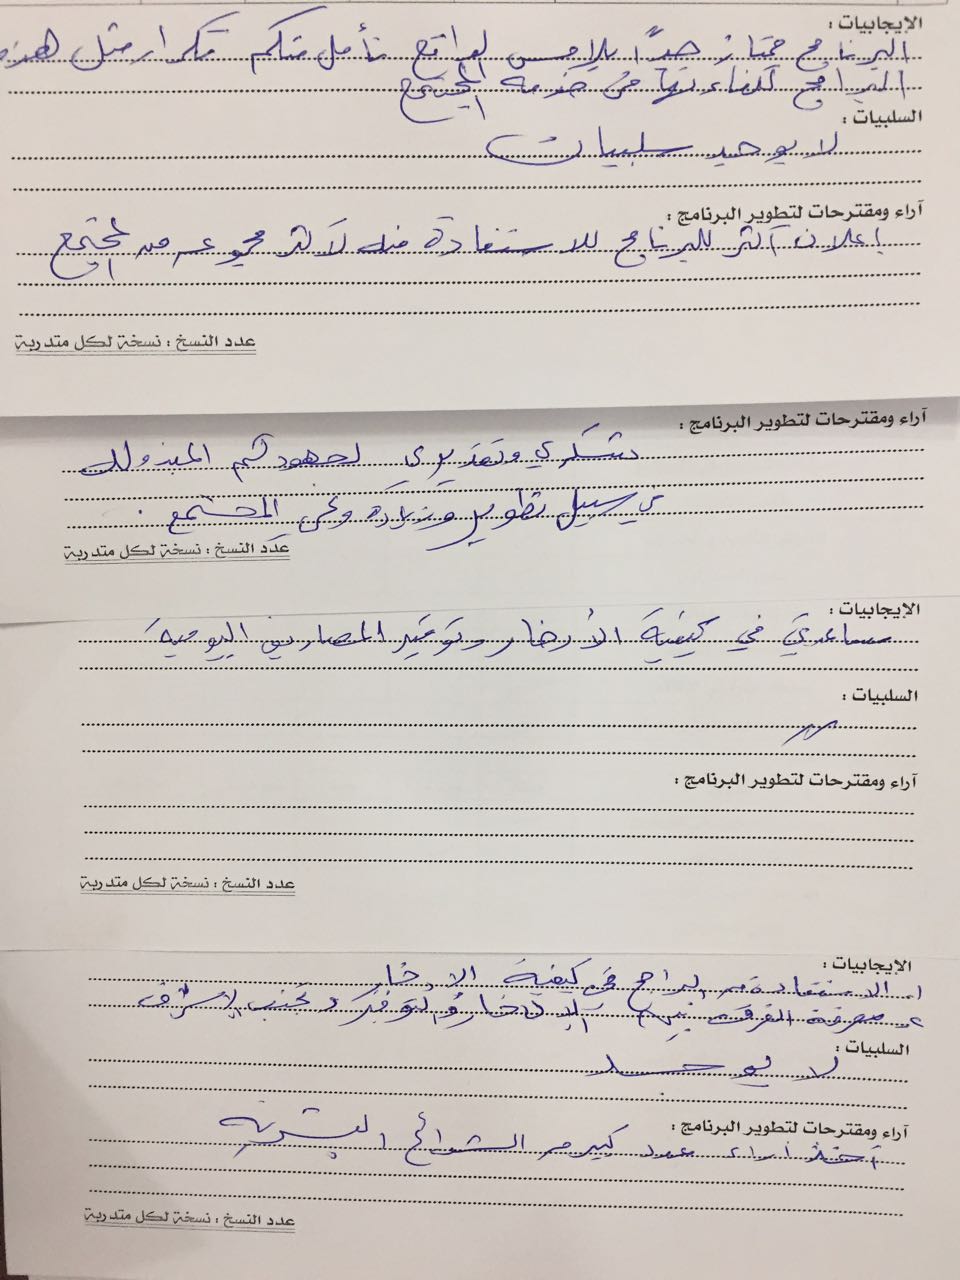 الإيجابيات :
البرنامج ممتاز جداً يلامس الواقع نأمل منكم تكرار مثل هذه
البرامج لكفاءتها في خدمة المجتمع
السلبيات :
لا يوجد سلبيات
آراء ومقترحات لتطوير البرنامج :
إعلان أكثر للبرنامج للاستفادة منه لأكثر مجموعه من المجتمع
عدد النسخ : نسخة لكل متدربة
آراء ومقترحات لتطوير البرنامج :
شكري وتقديري لجهودكم المبذوله
في سبيل تطوير وزيادة وعي المجتمع .
عدد النسخ : نسخة لكل متدربة
الإيجابيات :
ساعدني في كيفية الأدخار وتوفير المصاريف اليومية
السلبيات :
آراء ومقترحات لتطوير البرنامج :
عدد النسخ : نسخة لكل متدربة
الإيجابيات :
١. الاستفادة من البرامج في كيفية الادخار
٢. معرفة الفرق بين الإدخار والتوفير وتجنب الإسراف
السلبيات :
لا يوجد
آراء ومقترحات لتطوير البرنامج :
أخذ أراء عدد كبير من الشرائح البشرية
عدد النسخ : نسخة لكل متدربة